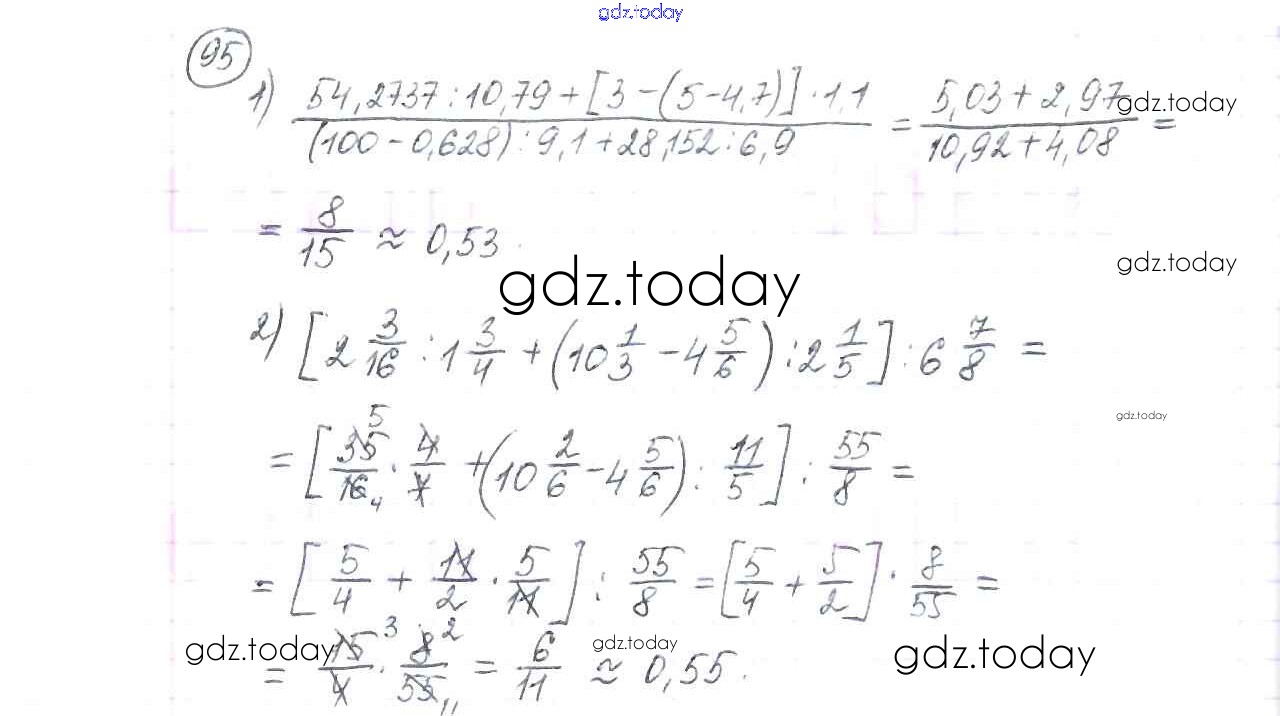 gdz.today
95
1) (54,2737 : 10,79 + [3 − (5 − 4,7)] · 1,1) / ((100 − 0,628) : 9,1 + 28,152 : 6,9) = (5,03 + 2,97) / (10,92 + 4,08) =
gdz.today
= 8/15 ≈ 0,53.
gdz.today
gdz.today
2) [2 3/16 : 1 3/4 + (10 1/3 − 4 5/6) : 2 1/5] : 6 7/8 =
gdz.today
= [35/16 · 4/7 + (10 2/6 − 4 5/6) : 11/5] : 55/8 =
5 4
= [5/4 + 11/2 · 5/11] : 55/8 = [5/4 + 5/2] · 8/55 =
gdz.today
gdz.today
gdz.today
= 15/4 · 8/55 = 6/11 ≈ 0,55.
3 2 11